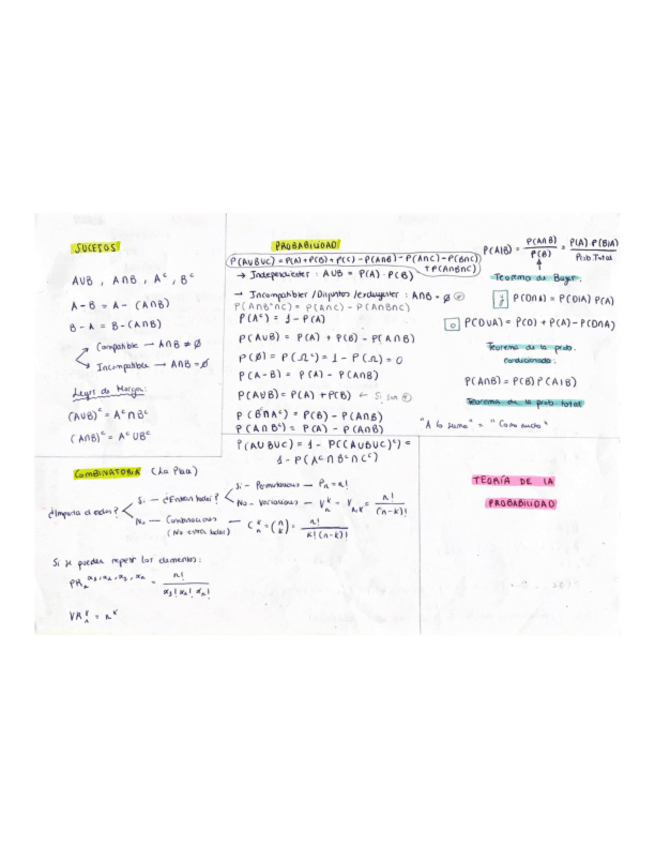 SUCESOS
A∪B , A∩B , Aᶜ , Bᶜ
A - B = A - (A∩B)
B - A = B - (A∩B)
Compatible → A∩B ≠ ∅
Incompatible → A∩B = ∅
Leyes de Morgan:
(A∪B)ᶜ = Aᶜ∩Bᶜ
(A∩B)ᶜ = Aᶜ∪Bᶜ
PROBABILIDAD
P(A∪B∪C) = P(A)+P(B)+P(C)-P(A∩B)-P(A∩C)-P(B∩C)
+P(A∩B∩C)
→ Independientes : A∪B = P(A)·P(B)
→ Incompatibles / Disjuntos / excluyentes : A∩B = ∅
P(A∩Bᶜ∩C) = P(A∩C) - P(A∩B∩C)
P(Aᶜ) = 1 - P(A)
P(A∪B) = P(A) + P(B) - P(A∩B)
P(∅) = P(Ωᶜ) = 1 - P(Ω) = 0
P(A-B) = P(A) - P(A∩B)
P(A∪B) = P(A) + P(B) ← Si son
P(B∩Aᶜ) = P(B) - P(A∩B)
P(A∩Bᶜ) = P(A) - P(A∩B)
P(A∪B∪C) = 1 - P((A∪B∪C)ᶜ) =
1 - P(Aᶜ∩Bᶜ∩Cᶜ)
P(A|B) = P(A∩B) / P(B) = P(A)·P(B|A) / Prob.Total
Teorema de Bayes.
y P(D∩A) = P(D|A) P(A)
o P(D∪A) = P(D) + P(A) - P(D∩A)
Teorema de la prob.
condicionada.
P(A∩B) = P(B) P(A|B)
Teorema de la prob. total
"A lo sumo" = "Como mucho"
COMBINATORIA (La Place)
¿Importa el orden?
Si - ¿Entran todos?
Si - Permutaciones - Pₙ = n!
No - Variaciones - Vₙᵏ = Vₙ,ₖ = n! / (n-k)!
No - Combinaciones - Cₙᵏ = (n k) = n! / k!(n-k)!
(No entran todos)
Si se pueden repetir los elementos:
PRₙ^α₁,α₂,α₃,αₙ = n! / α₁! α₂! αₙ!
VRₙᵏ = nᵏ
TEORÍA DE LA
PROBABILIDAD